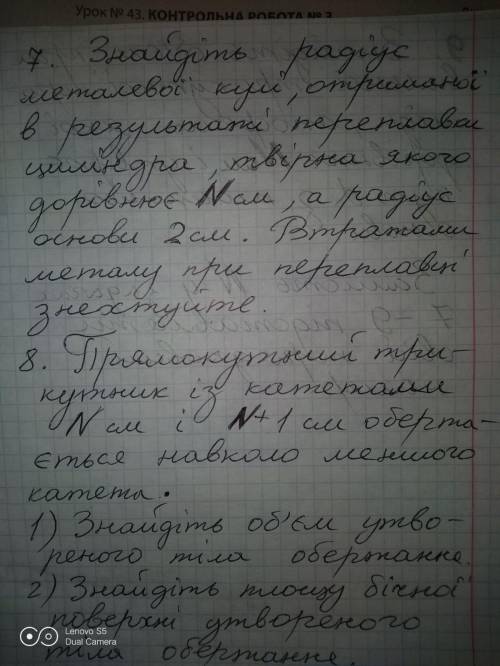 Урок № 43. КОНТРОЛЬНА РОБОТА № 3
7. Знайдіть радіус
металевої кулі, отриманої
в результаті переплавки
циліндра, твірна якого
дорівнює N см, а радіус
основи 2 см. Втратами
металу при переплавці
знехтуйте.
8. Прямокутний три-
кутник із катетами
N см і N+1 см оберта-
ється навколо меншого
катета.
1) Знайдіть об'єм утво-
реного тіла обертання.
2) Знайдіть площу бічної
поверхні утвореного
тіла обертання.
Lenovo S5
Dual Camera